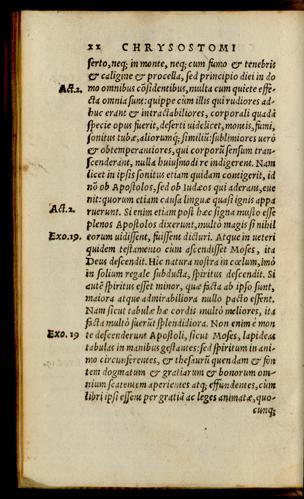 xx CHRYSOSTOMI
serto, neq; in monte, neq; cum fumo & tenebris
& caligine & procella, sed principio diei in do
Act.2. mo omnibus cōsidentibus, multa cum quiete effe-
cta omnia sunt: quippe cùm illis qui rudiores ad-
huc erant & intractabiliores, corporali quadā
specie opus fuerit, deserti uidelicet, montis, fumi,
sonitus tubæ, aliorumq; similiū: sublimiores uerò
& obtemperantiores, qui corporū sensum tran-
scenderant, nulla huiusmodi re indigerent. Nam
licet in ipsis sonitus etiam quidam contigerit, id
nō ob Apostolos, sed ob Iudæos qui aderant, eue
nit: quorum etiam causa linguæ quasi ignis appa
Act.2. ruerunt. Si enim etiam post hæc signa musto esse
plenos Apostolos dixerunt, multò magis si nihil
Exo.19. eorum uidissent, fuissent dicturi. Atque in ueteri
quidem testamento cùm ascendisset Moses, ita
Deus descendit. Hic natura nostra in cœlum, imò
in solium regale subducta, spiritus descendit. Si
autē spiritus esset minor, quæ facta ab ipso sunt,
maiora atque admirabiliora nullo pacto essent.
Nam sicut tabulæ hæ cordis multò meliores, ita
facta multò fuerūt splendidiora. Non enim è mon
Exo.19 te descenderunt Apostoli, sicut Moses, lapideas
tabulas in manibus gestantes: sed spiritum in ani-
mo circunferentes, & thesaurū quendam & fon
tem dogmatum & gratiarum & bonorum om-
nium scatentem aperientes atq; effundentes, cùm
libri ipsi essent per gratiā ac leges animatæ, quo-
cunq;